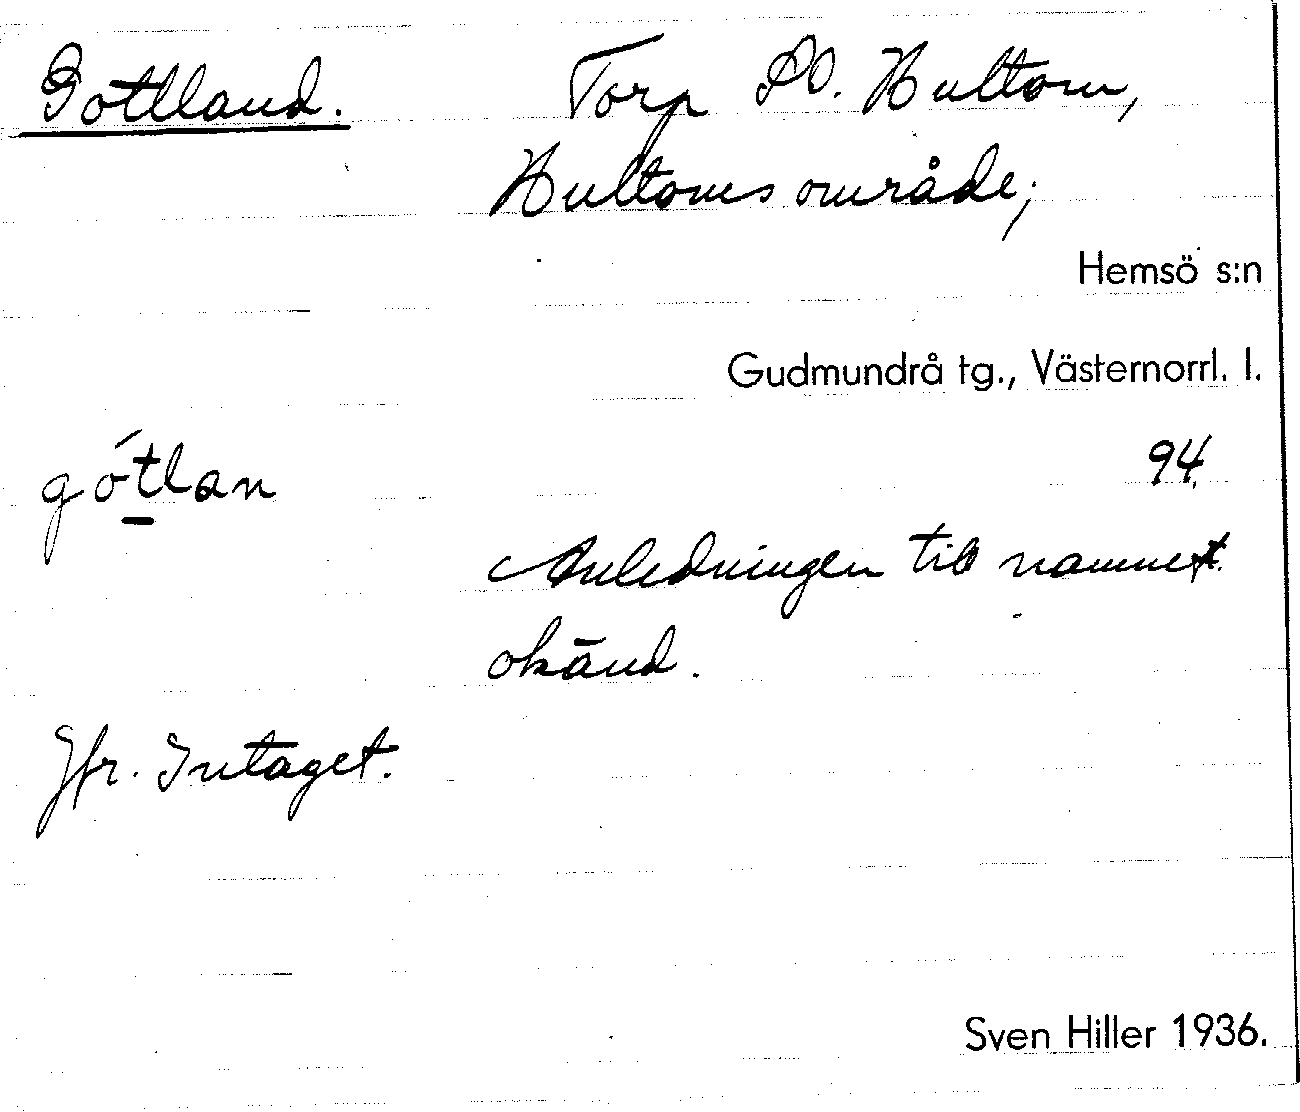 Gottland. Torp SO. Hultom,
Hultoms område;
Hemsö s:n
Gudmundrå tg., Västernorrl. l.
gótlan 94
Anledningen till namnet
okänd.
Jfr. Intaget.
Sven Hiller 1936.